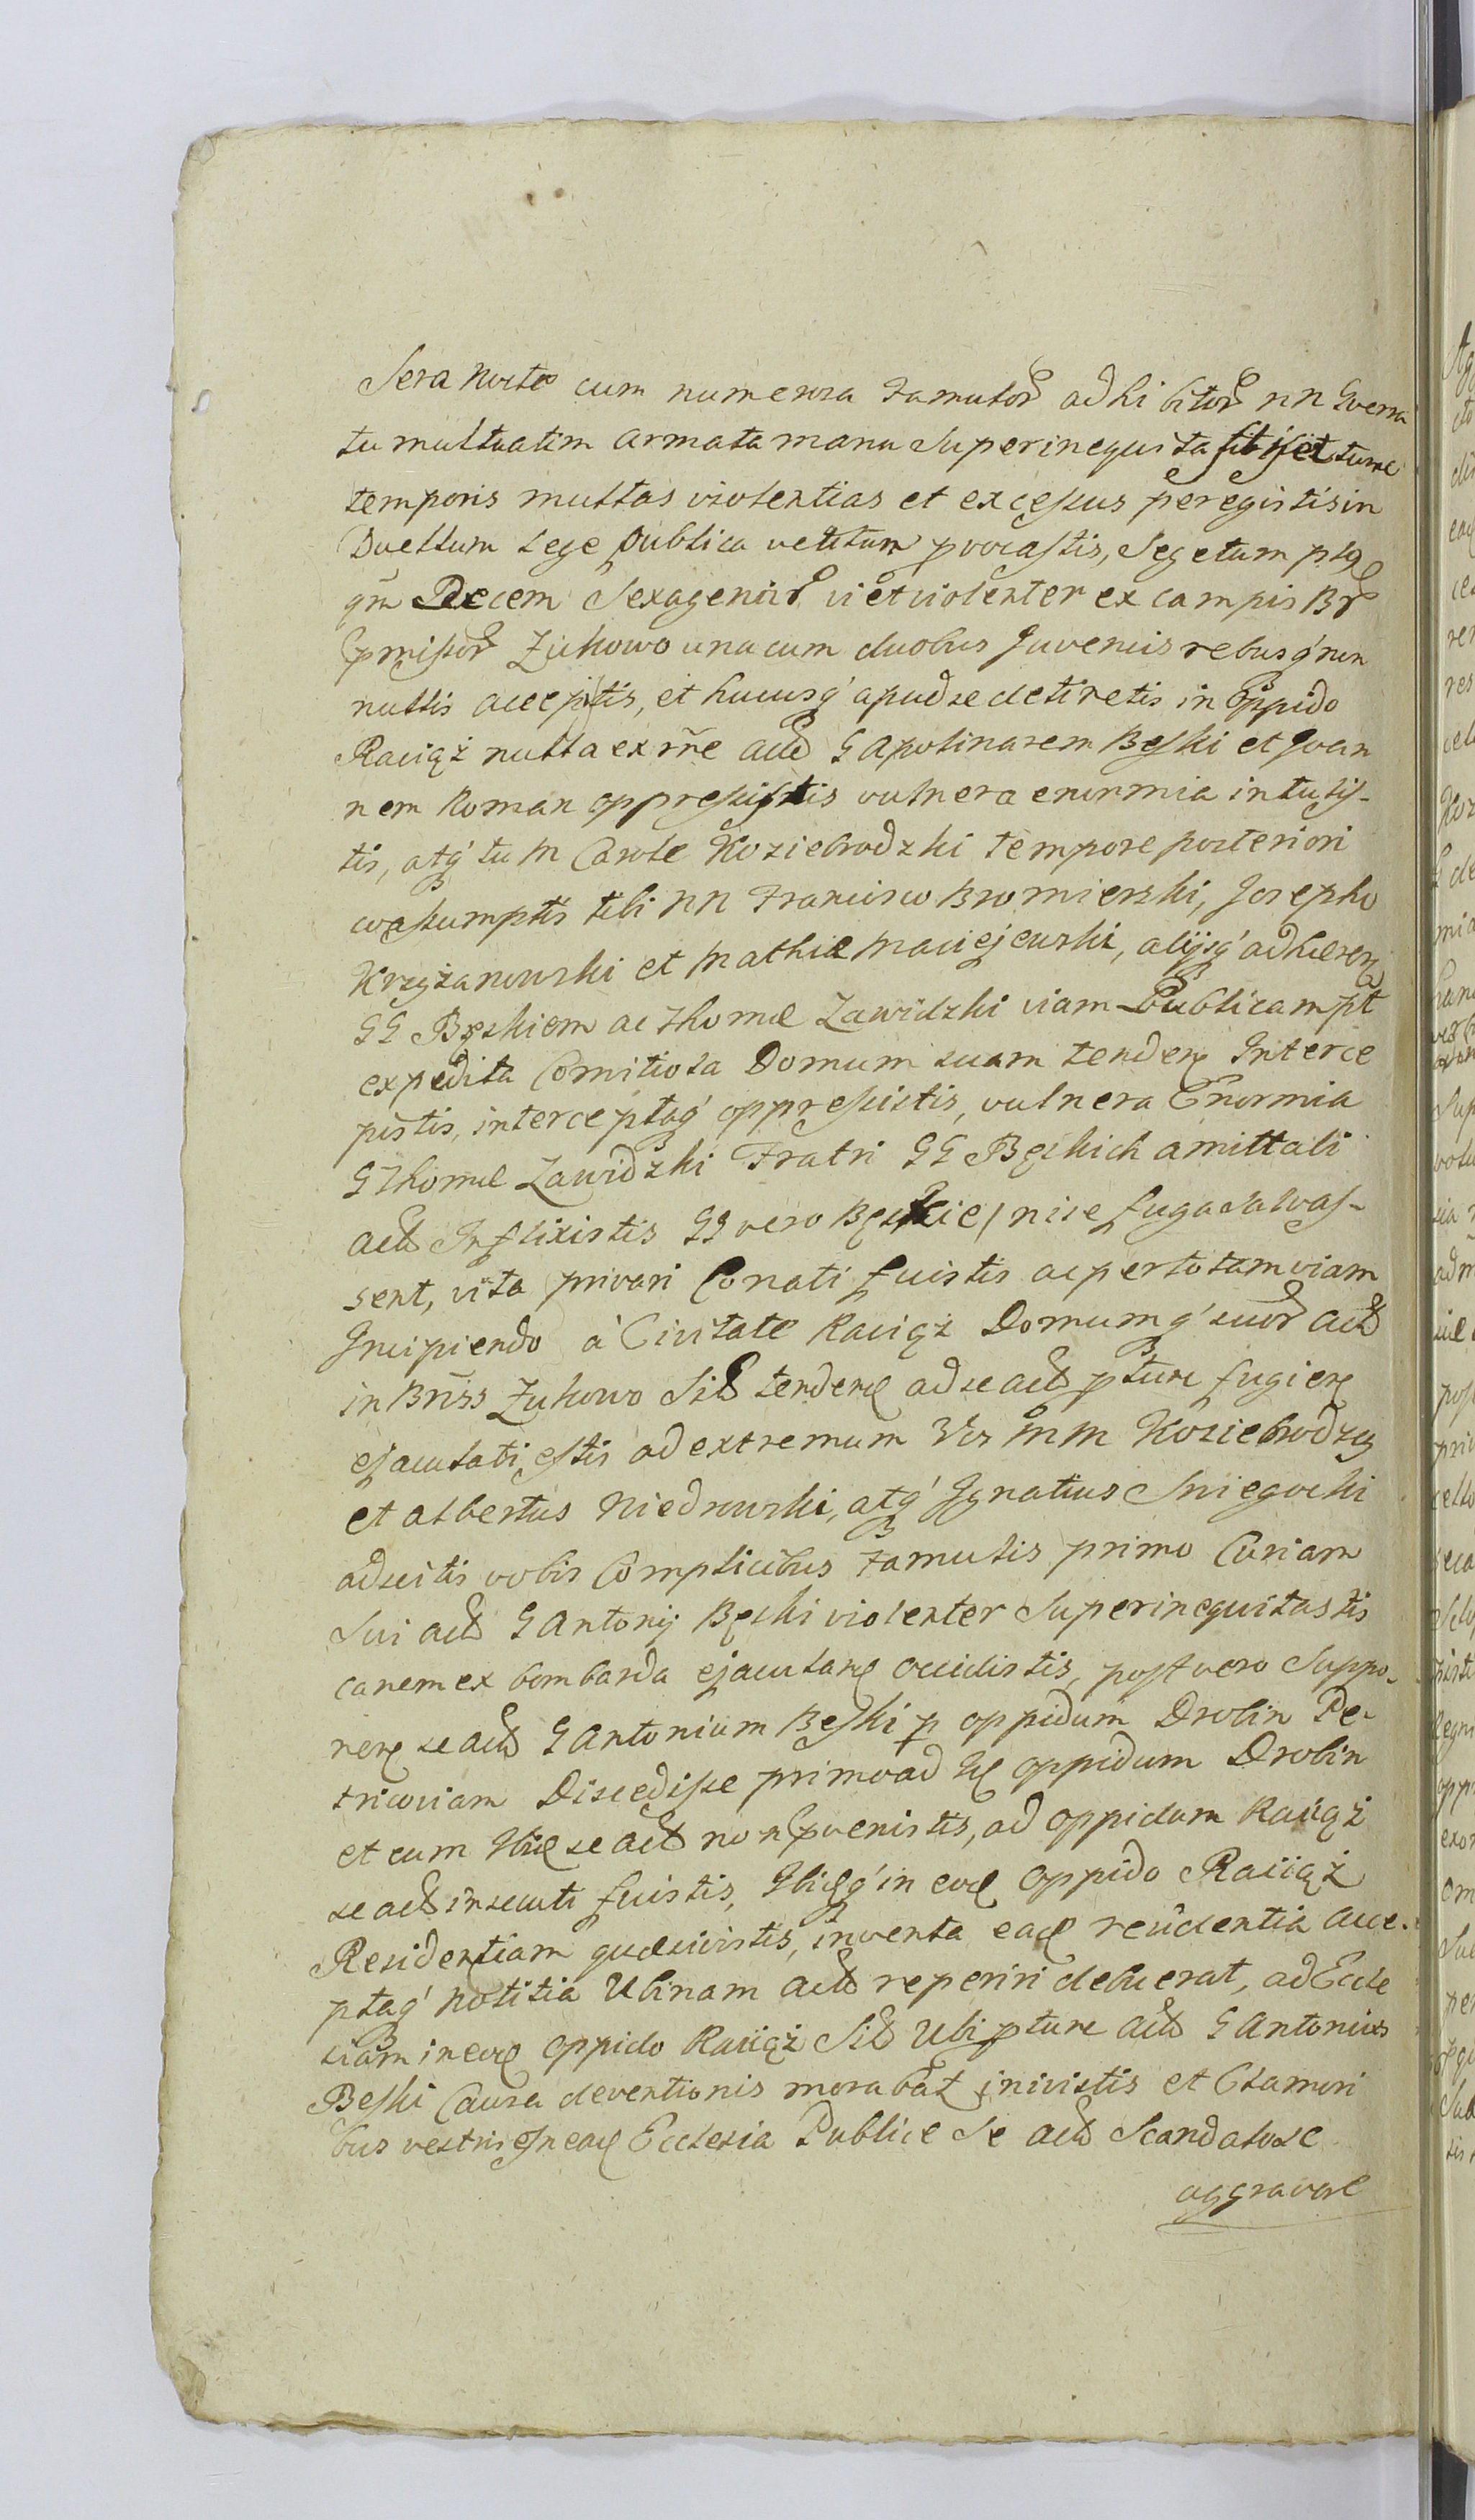 Sera Nocte cum numerosa Famulor adhibitor NN Gverra
tumultuatim armata manu Superinequita stis et tunc
temporis multas violentias et excessus peregistis in
Duellum Lege publica vetitum pvocastis, Segetum plq
qm Decem Sexagenar vi et violenter ex campis Br
pmissor Zukowo una cum duobus Juvencis rebusq' non
nullis acceptis, et hucusq' apud se detinetis in Oppido
Raciąż nulla ex rñe act G Apolinarem Bęski et Joan
nem Roman oppressistis vulnera enormia intulis-
tis, atq' tu M Carole Koziebrodzki tempore posteriori
coassumptis tibi NN Francisco Bromierski, Josepho
Krzyżanowski et Mathia Maciejewski, alijsq' adhæren
GG Bęskiem ac Thomæ Zawidzki viam Publicam pt
expedita Comitiola Domum suam tenden Interce
pistis, interceptaq' oppressistis, vulnera Enormia
G Thomæ Zawidzki Fratri GG Bęskich amittali
act Inflixistis GG vero Bęskie/ nise fuga salvas-
sent, vita privari Conati fuistis ac per totam viam
Incipiendo à Civitate Raciąż Domumq' suor act
in Bñss Zukowo Sit tendere ad se act pture fugiere
ejaculati estis ad extremum Vos MM Koziebrodzcy
et Albertus Niedrowski, atq' Ignatius Sniegocki
adscitis vobis Complicibus Famulis primo Curiam
Sui act G Antonij Bęski violenter Superinequitastis
canem ex bombarda ejaculare occidistis, post vero Suppo-
nere se act G Antonium Bęski p oppidum Drobin Pe-
tricoviam Discedisse primo ad oppidum Drobin
et cum Ibi se act non pvenistis, ad oppidum Raciąż
se act insecuti fuistis, Ibiq' in eod Oppido Raciąż
Residentiam quæsivistis, inventa ead residentia acce-
ptaq' notitia Ubinam act reperiri debuerat, ad Eccle
siam in eod oppido Raciąż Sit Ubi pture act G Antonius
Bęski Causa devotionis morabat inivistis et Clamori
bus vestris In ead Ecclesia Publice Se act Scandalose
aggravare